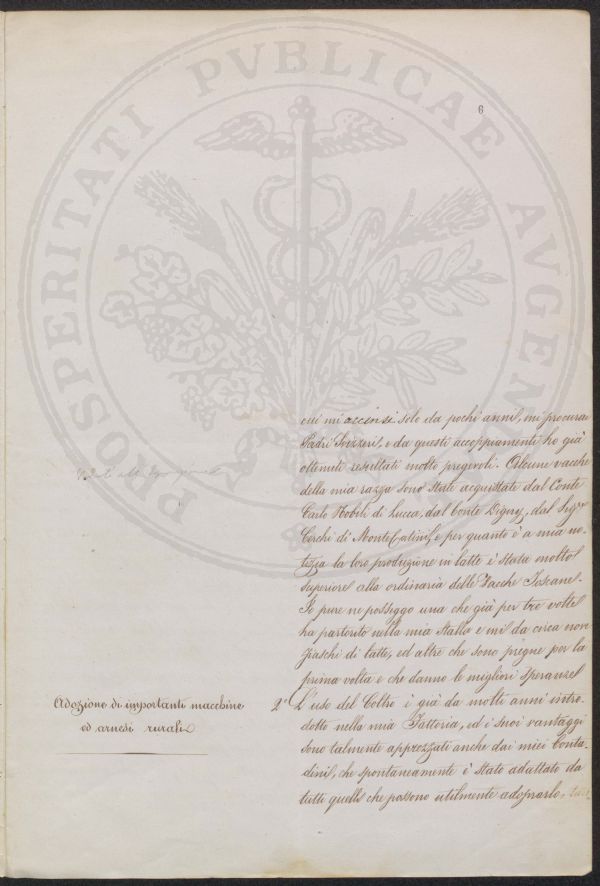 PROSPERITATI PVBLICAE AVGEN
6
cui mi accinsi solo da pochi anni, mi procurai
Padri Svizzeri, e da questi accoppiamenti ho già
ottenuti resultati molto pregevoli. Alcune vacche
della mia razza sono state acquistate dal Conte
Carlo Nobili di Lucca, dal Conte Digny, dal Sigr
Cerchi di MonteCatini, e per quanto è a mia no-
tizia la loro produzione in latte è stata molto
superiore alla ordinaria delle Vacche Toscane.
Io pure ne posseggo una che già per tre volte
ha partorito nella mia Stalla e mi da circa nove
fiaschi di latte, ed altre che sono pregne per la
prima volta e che danno le migliori speranze
Adozione di importanti macchine
ed arnesi rurali
2° L'uso del Coltro è già da molti anni intro-
dotto nella mia Fattoria, ed i suoi vantaggi
sono talmente apprezzati anche dai miei Conta-
dini, che spontaneamente è stato adattato da
tutti quelli che possono utilmente adoprarlo.